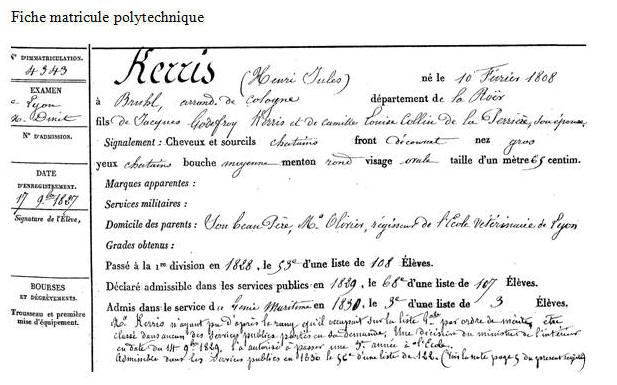 Fiche matricule polytechnique
N° D'IMMATRICULATION.
4343
EXAMEN
Lyon
DATE
D'ENREGISTREMENT.
17 9.bre 1827
Signature de l'Élève,
BOURSES
ET DÉGRÈVEMENTS.
Trousseau et première
mise d'équipement.
N° D'ADMISSION.
Kerris (Henri Jules) né le 10 Février 1808
à Bruhl, arrond. de Cologne département de la Roër
fils de Jacques Godefroy Kerris et de Camille Louise Collin de la Perrière, son épouse
Signalement : Cheveux et sourcils chatains front découvert nez gros
yeux chatains bouche moyenne menton rond visage ovale taille d'un mètre 65 centim.
Marques apparentes :
Services militaires :
Domicile des parents : Son beau Père, Mr Olivier, régisseur de l'Ecole Vétérinaire de Lyon
Grades obtenus :
Passé à la 1re division en 1828, le 53e d'une liste de 108 Élèves.
Déclaré admissible dans les services publics en 1829, le 68e d'une liste de 107 Élèves.
Admis dans le service du Génie Maritime en 1830, le 3e d'une liste de 3 Élèves.
Mr Kerris n'ayant pu d'après le rang qu'il occupait sur la liste gale par ordre de mérite, être
classé dans aucun des Services publics portés en sa demande, Une décision du ministre de l'intérieur
en date du 14 9bre 1829, l'a autorisé à passer une 3e année à l'Ecole.
Admissible dans les Services publics en 1830 le 56e d'une liste de 122. (Voir la suite page 5 du présent registre)